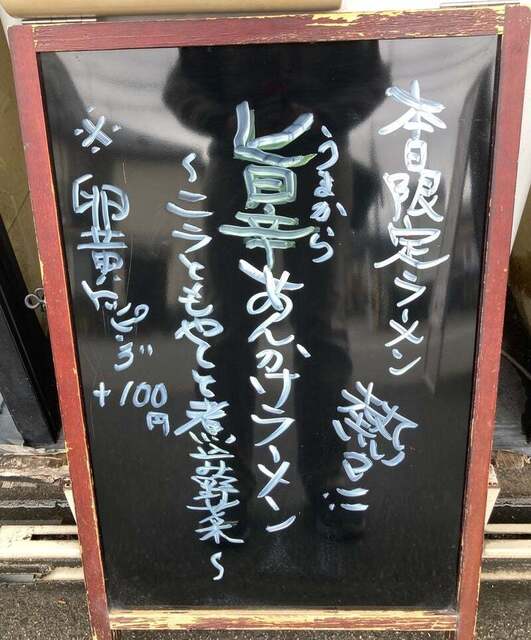 本日限定ラーメン
熱い日に
うまから
旨辛あんかけラーメン
～ニラともやしと煮込み野菜～
※卵黄
+100円